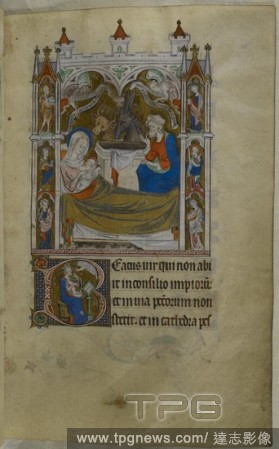 Beatus uir qui non abi
it in consilio impioru̅
et in uia pc̅torum non
stetit. et in cathedra pes
TPG
www.tpgnews.com / 達志影像